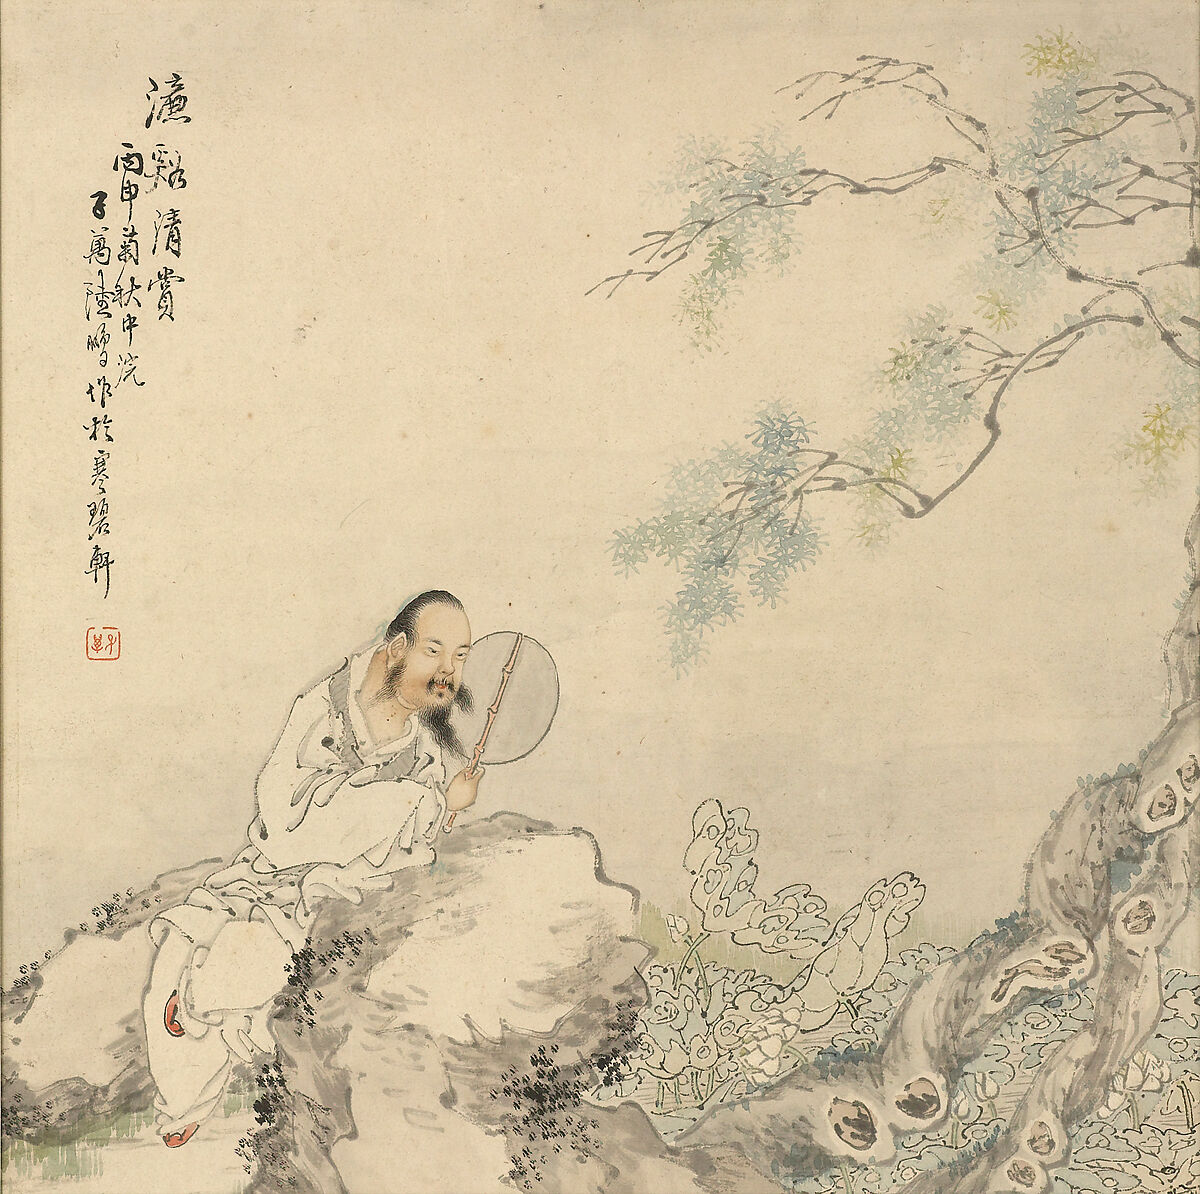 濂谿清賞
丙申菊秋中浣
子萬陸鵬作於寒碧軒
子萬